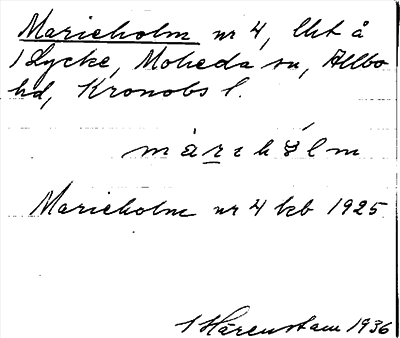 Marieholm nr 4, lht å
1 Lycke, Moheda sn, Allbo
hd, Kronobs l.
màrɪhólm
Marieholm nr 4 kb 1925
1 Härenstam 1936